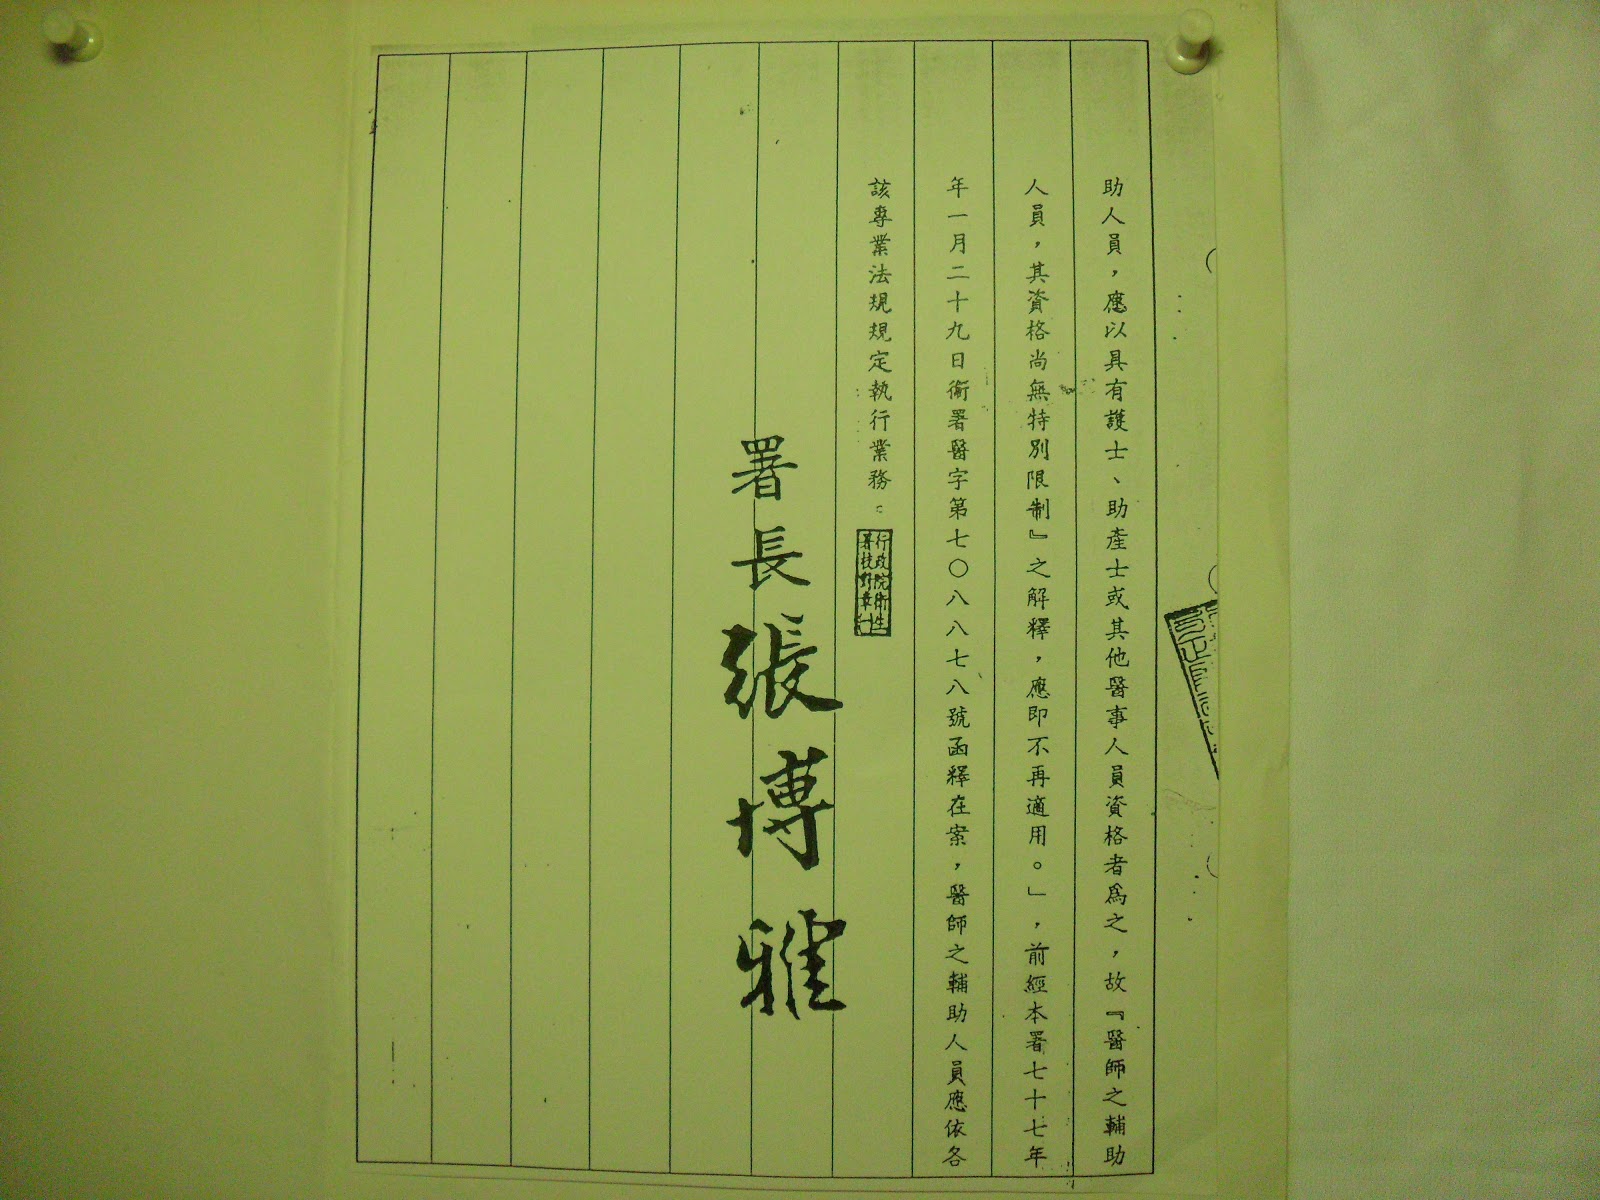 助人員，應以具有護士、助產士或其他醫事人員資格者為之，故『醫師之輔助
人員，其資格尚無特別限制』之解釋，應即不再適用。」，前經本署七十七年
年一月二十九日衛署醫字第七〇八八七八號函釋在案，醫師之輔助人員應依各
該專業法規規定執行業務。
行政院衛生
署校對章
署長張博雅